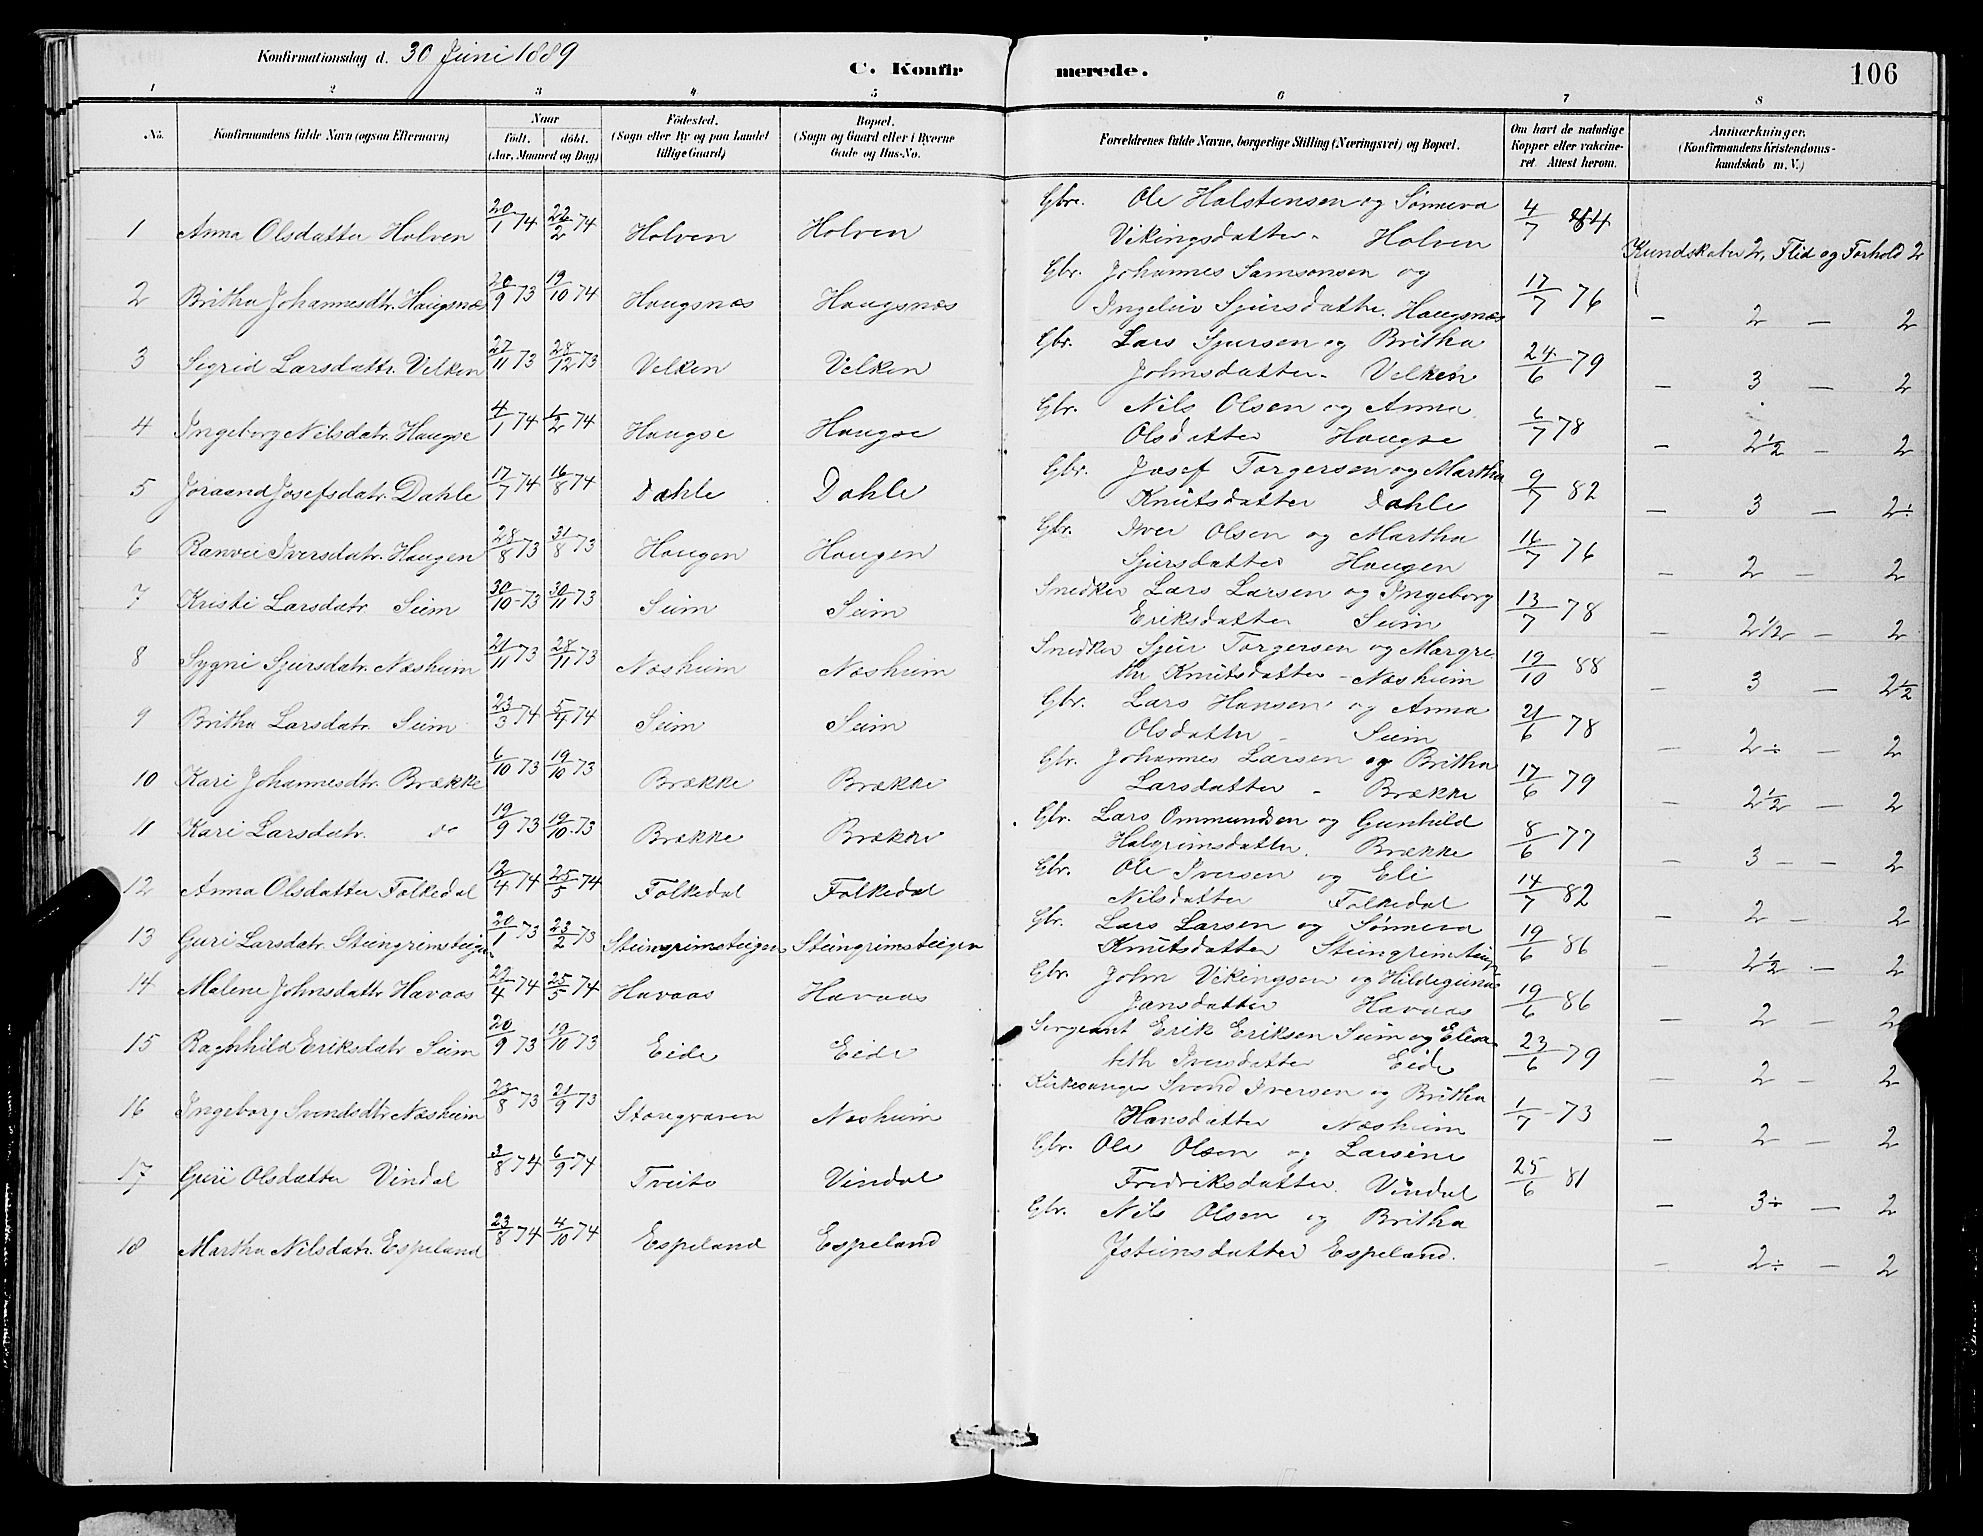 Konfirmationsdag d. 30 Juni 1889
C. Konfirmerede.
106
1 2 3 4 5 6 7 8
No.
Konfirmandens fulde Navn (ogsaa Efternavn)
Naar
født. døbt.
(Aar, Maaned og Dag)
Fødested.
(Sogn eller By og paa Landet
tillige Gaard)
Bopæl.
(Sogn og Gaard eller i Byerne
Gade og Hus-No.
Forældrenes fulde Navne, borgerlige Stilling (Næringsvei) og Bopæl.
Om havt de naturlige
Kopper eller vakcine-
ret. Attest herom.
Anmærkninger.
(Konfirmandens Kristendoms-
kundskab m. V.)
1 Anna Olsdatter Holven 20/1 74 22/2 74 Holven Holven Gbr. Ole Holstensen og Sønneva
Vikingsdatter - Holven 4/7 84 Kundskaber 2, Flid og Forhold 2
2 Britha Johannesdtr. Haugsnæs 20/9 73 19/10 74 Haugsnæs Haugsnæs Gbr. Johannes Samsonsen og
Sjursdatter. Haugsnæs 17/7 76 — 2 — 2
3 Sigrid Larsdattr. Velken 27/11 73 28/12 73 Velken Velken Gbr. Lars Sjursen og Britha
Johnsdatter - Velken 24/6 79 — 3 — 2
4 Ingeborg Nilsdatr. Haugse 4/1 74 1/2 74 Haugse Haugse Gbr. Nils Olsen og Anna
Olsdatter Haugse 6/7 78 — 2 1/2 — 2
5 Josefsdatr. Dahle 17/7 74 16/8 74 Dahle Dahle Gbr. Josef Torgersen og Martha
Knutsdatter Dahle 9/7 82 — 3 — 2÷
6 Ranvei Iversdatr. Haugen 28/8 73 31/8 73 Haugen Haugen Gbr. Iver Olsen og Martha
Sjursdatter Haugen 14/7 76 — 2 — 2
7 Kristi Larsdatr Seim 30/10 73 30/11 73 Seim Seim Snedker Lars Larsen og Ingeborg
Eriksdatter Seim 13/7 78 — 2 1/2 — 2
8 Sygni Sjursdatr. Næsheim 21/11 73 28/11 73 Næsheim Næsheim Snedker Sjur Torgersen og Margre
the Knutsdatter - Næsheim 19/10 88 — 3 — 2 1/2
9 Britha Larsdatr. Seim 23/3 74 5/4 74 Seim Seim Gbr. Lars Hansen og Anna
Olsdatter - Seim 21/6 78 — 2÷ — 2
10 Kari Johannesdtr. Brække 6/10 73 19/10 73 Brække Brække Gbr. Johannes Larsen og Britha
Larsdatter - Brække 17/6 79 — 2 1/2 — 2
11 Kari Larsdatr. do 19/9 73 19/10 73 Brække Brække Gbr. Lars Ommundsen og Gunhild
Halgrimsdatter. Brække 8/6 77 — 3 — 2
12 Anna Olsdatter Folkedal 12/4 74 25/5 74 Folkedal Folkedal Gbr. Ole Iversen og Eli
Nilsdatter Folkedal 14/7 82 — 2 — 2
13 Guri Larsdatr. Steingrimsteigen 20/1 73 23/2 73 Steingrimsteigen Steingrimsteigen Gbr. Lars Larsen og Sønneva
Knutsdatter Steingrimsteigen 19/6 86 — 2 1/2 — 2
14 Malene Johnsdattr Havaas 22/4 74 25/5 74 Havaas Havaas Gbr. John Vikingsen og Hildegunn
Jansdatter Havaas 19/6 86 — 2 — 2
15 Ragnhild Eriksdatr Seim 20/9 73 19/10 73 Eide Eide Sergeant Erik Eriksen Seim og Elisa-
beth Iversdatter Eide 23/6 79 — 2 — 2
16 Ingeborg Svendsdtr Næsheim 23/8 73 21/9 73 Storegraven Næsheim Kirkesanger Svend Iversen og Britha
Hansdatter Næsheim 1/7 73 — 2 — 2
17 Guri Olsdatter Vindal 3/8 74 6/9 74 Tveito Vindal Gbr. Ole Olsen og Larsine
Fredriksdatter. Vindal 25/6 81 — 3÷ — 2
18 Martha Nilsdatr. Espeland 23/8 74 4/10 74 Espeland Espeland Gbr. Nils Olsen og Britha
Espeland. — 2÷ — 2